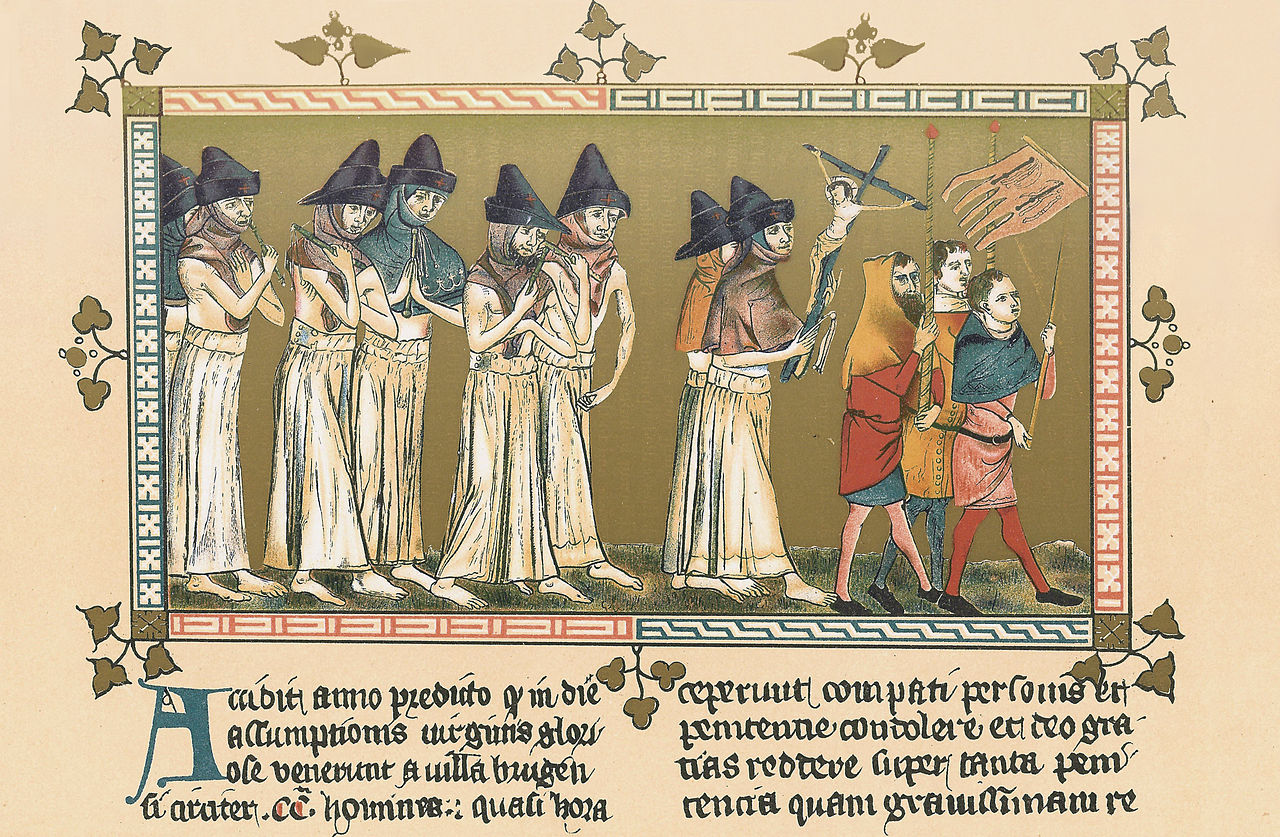 Accidit anno predicto qͥ in die
assumptionis uirginis glori
ose venerunt a uilla brugen
si circiter .CC. homines: quasi hora
ceperunt compati personis et
penitentie condolere et deo gra-
tias reddere super tanta peni
tencia quam grauissimam re